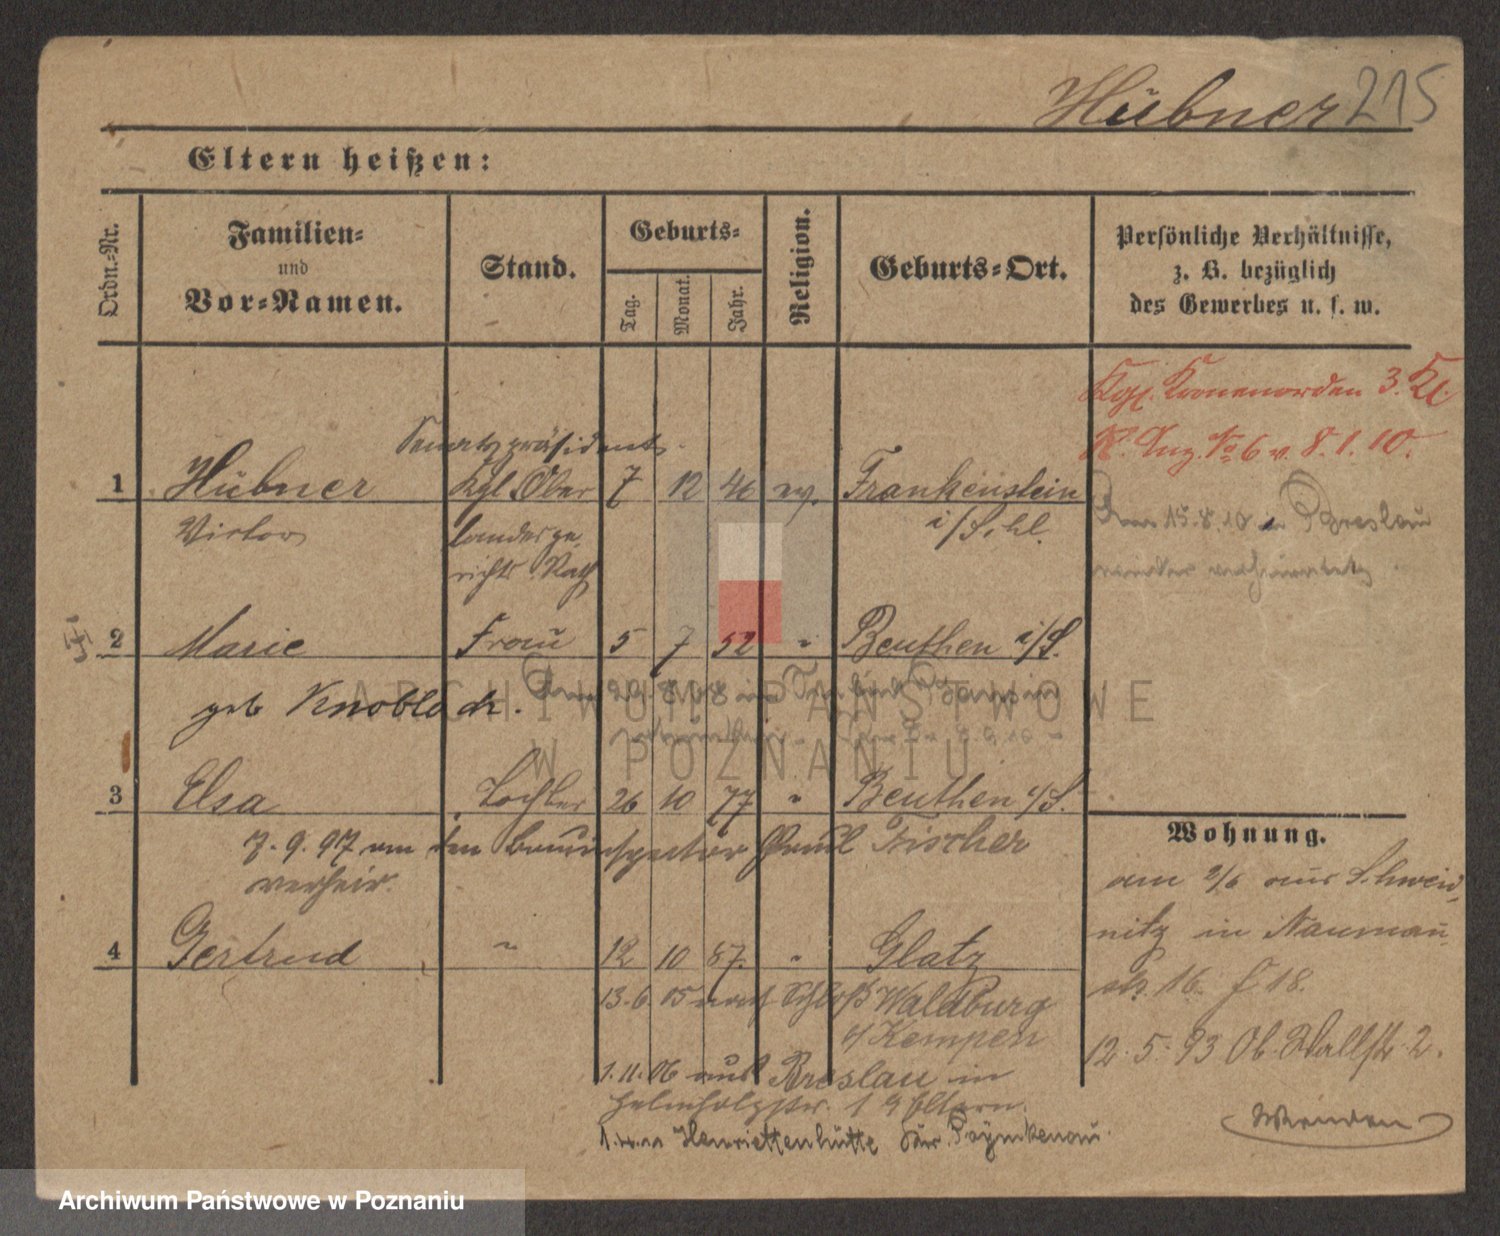 Hübner 215
Eltern heißen:
Ordn.-Nr.
Familien-
und
Vor-Namen.
Stand.
Geburts-
Tag.
Monat.
Jahr.
Religion.
Geburts-Ort.
Persönliche Verhältnisse,
z. B. bezüglich
des Gewerbes u. s. w.
Kgl. Kronenorden 3. Kl.
R. Anz. No 6 v. 8. 1. 10.
Senatspräsident
1 Hübner Kgl. Ober 7 12 46 ev. Frankenstein
Victor landesge- i/Schl.
richts Rath
15.8.10 in Breslau
wieder verheiratet
2 Marie Frau 5 7 52 " Beuthen i/S.
geb Knobloch.
3 Elsa Tochter 26 10 77 " Beuthen i/S.
7. 9. 97 an den Bauinspector Paul Fischer
verheir.
4 Gertrud " 12 10 87. " Glatz
13. 6. 05 nach Schloß Waldburg
Kempen
1. 11. 06 aus Breslau in
Helmholtzstr. 1 Eltern.
Henriettenhütte Primkenau.
Wohnung.
am 2/6 aus Schweid-
nitz in Naumann
str. 16. 18.
12. 5. 93 Ob. Wallstr. 2.
Wenden
ARCHIWUM PAŃSTWOWE
W POZNANIU
Archiwum Państwowe w Poznaniu